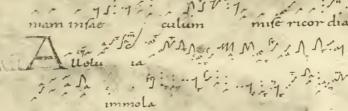 niam insae culum mise ricor dia
Allelu ia
immola